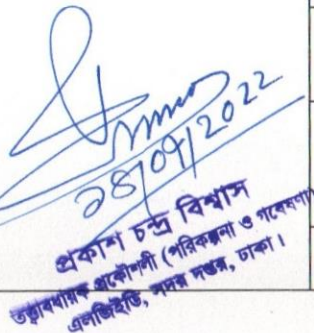 ২৪/০৭/2022
প্রকাশ চন্দ্র বিশ্বাস
তত্ত্বাবধায়ক প্রকৌশলী (পরিকল্পনা ও গবেষণা)
এলজিইডি, সদর দপ্তর, ঢাকা।